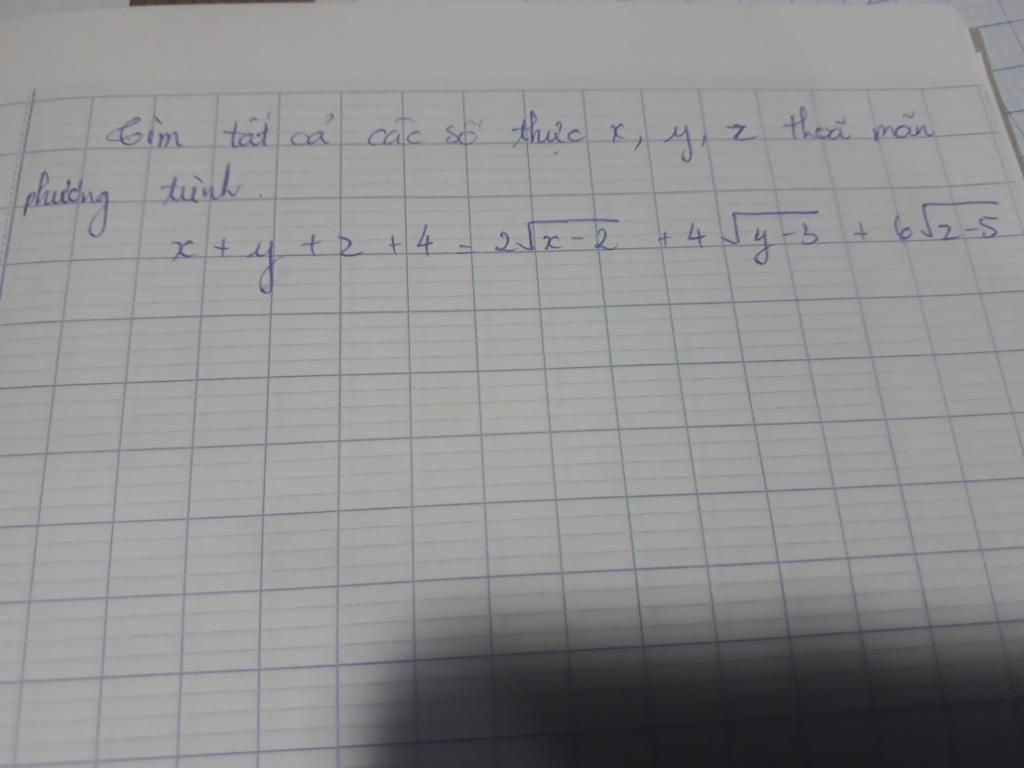 Tìm tất cả các số thực x, y, z thoã mãn
phương trình.
x + y + z + 4 = 2√x-2 + 4√y-3 + 6√z-5